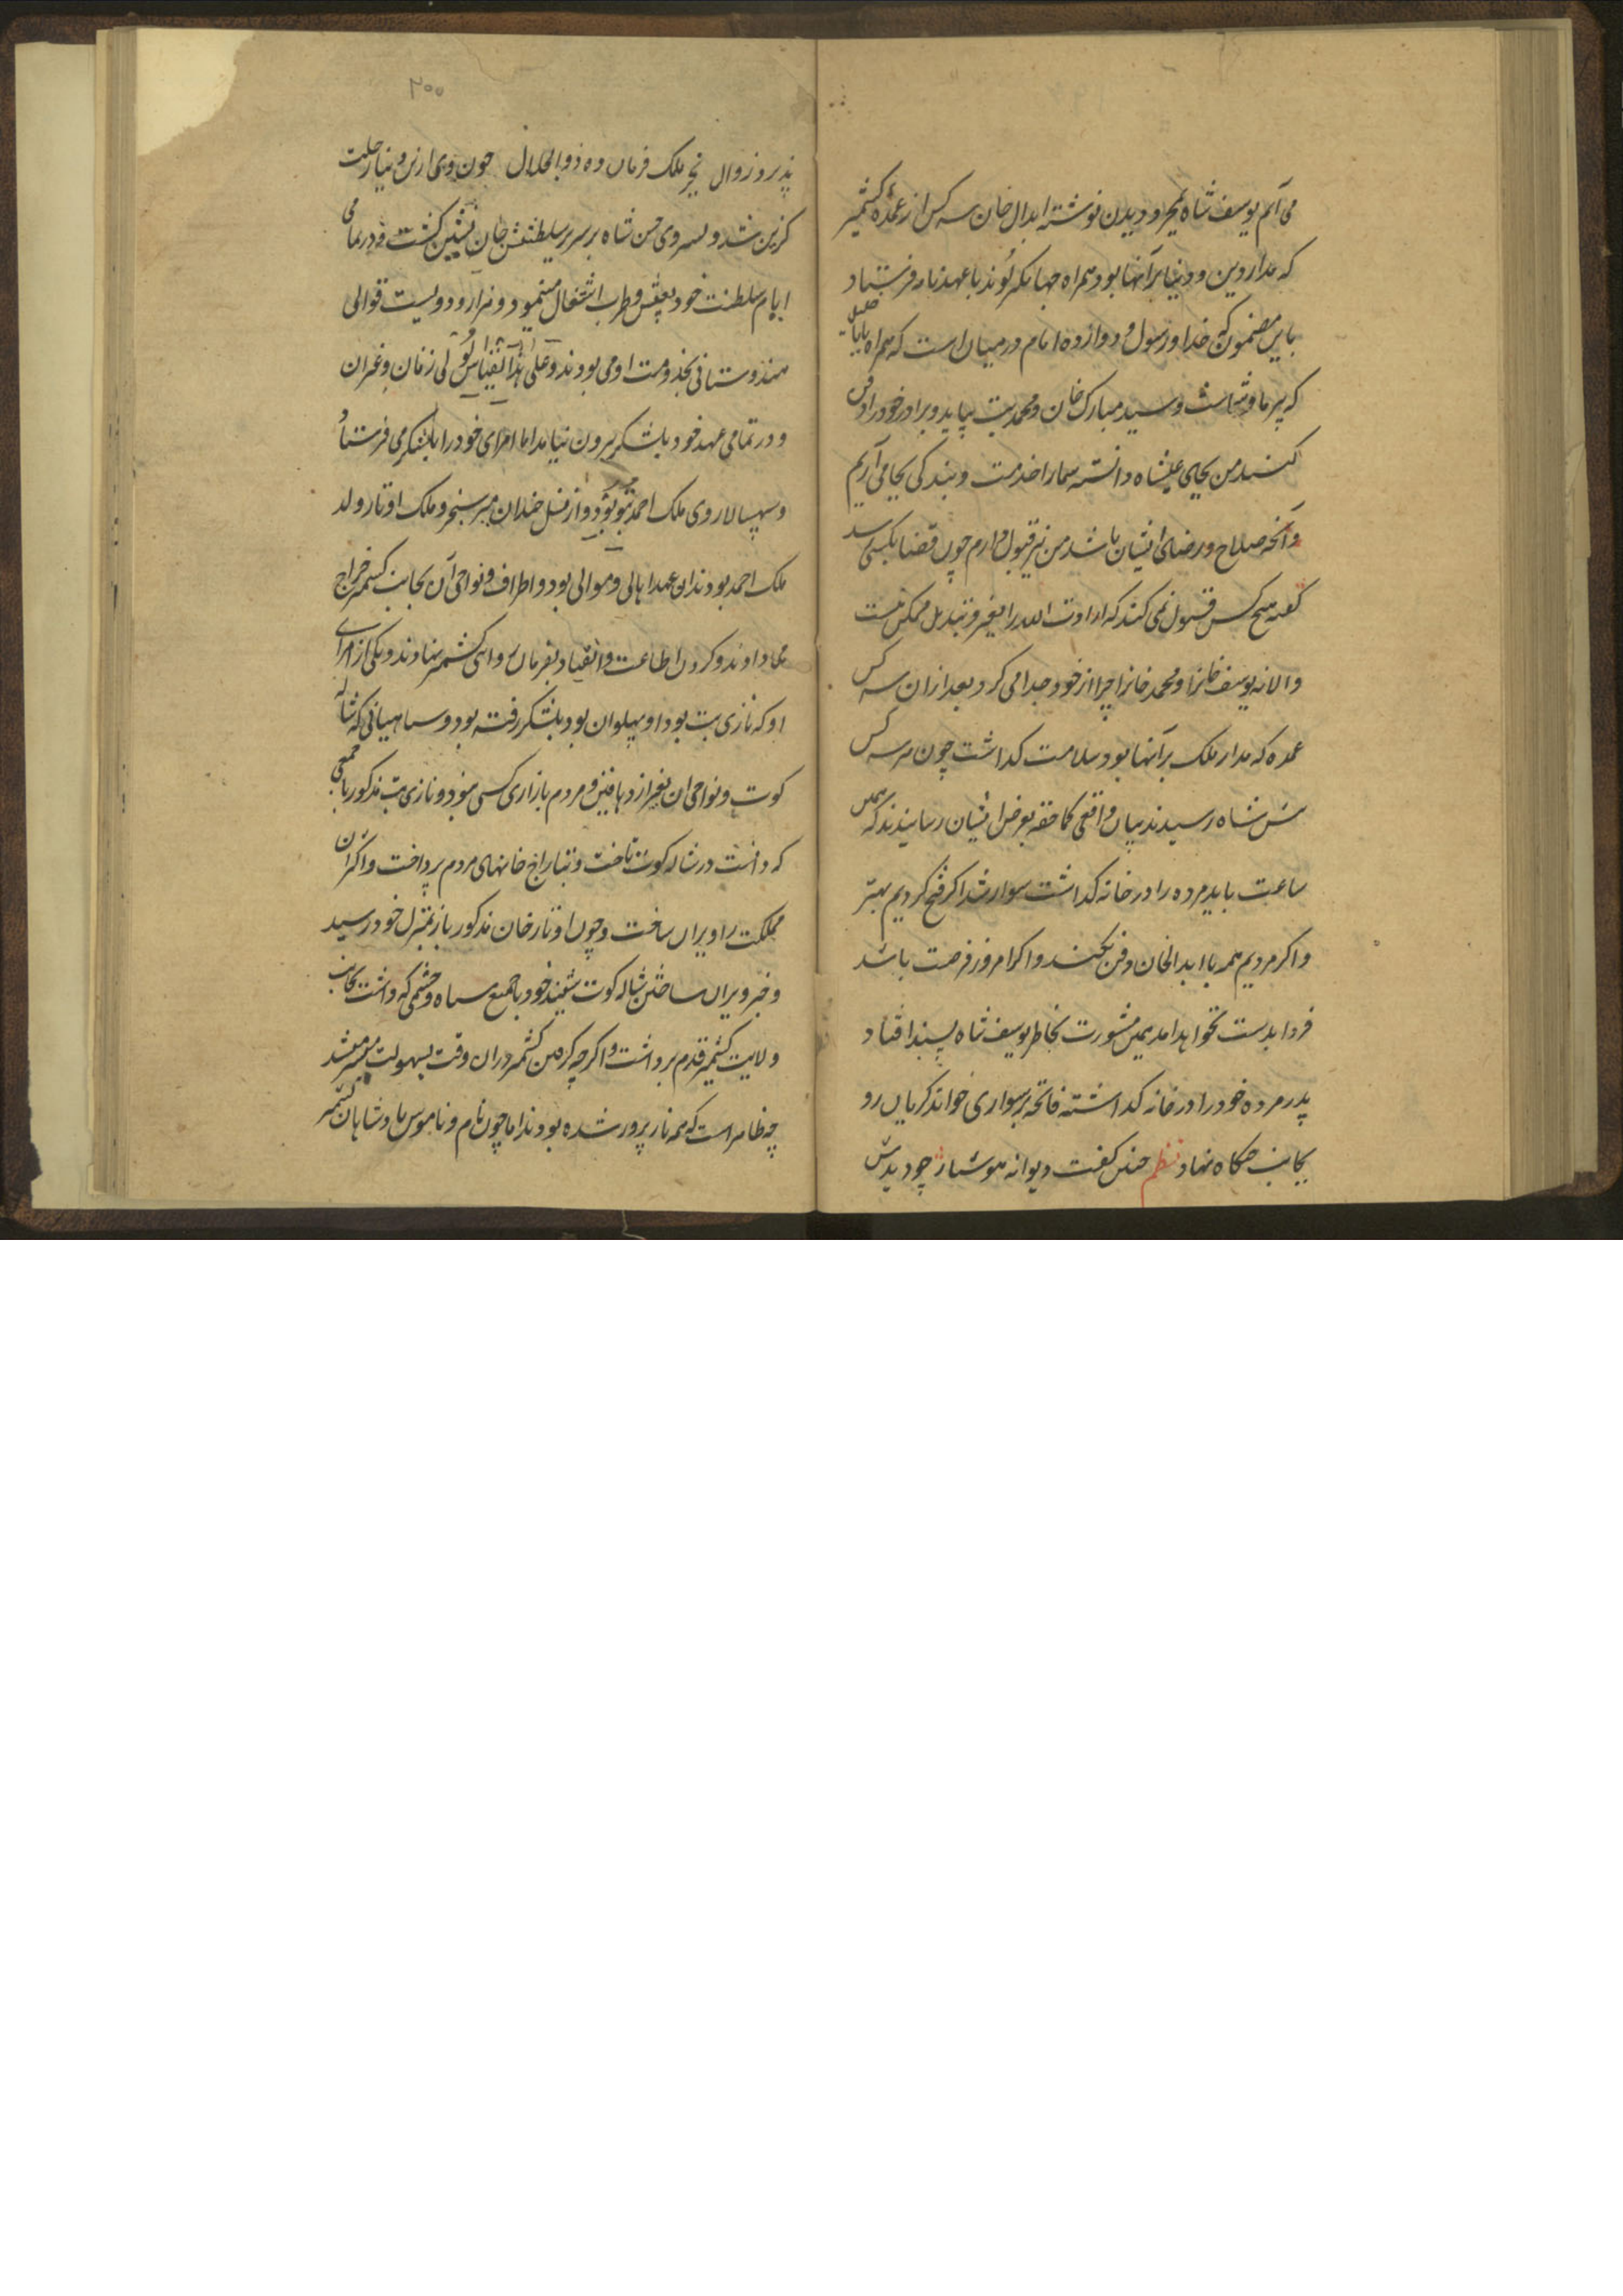 می آیم یوسف شاه بمجرد دیدن نوشته ابدال خان سه کس از عمده کشمیر
که مدار دین و دنیا بر آنها بود همراه جهانگیر لوند با عهدنامه فرستاد
باین مضمون که خدا و رسول و دوازده امام در میان است که همراه بابا خلیل
که پیر ما و شماست و سید مبارک خان و محمد بت بیاید و برادر خود را دفن
کنید من بجای علیشاه دانسته شما را خدمت و بندگی بجا می آریم
و آنچه صلاح و رضای ایشان باشد من نیز قبول دارم چون قضا بکسی رسد
گفته هیچ کس قبول نمی کند که ارادت الله را تغیر و تبدیل ممکن نیست
والا نه یوسف خانرا و محمد خانرا چرا از خود جدا می کرد بعد ازان سه کس
عمده که مدار ملک بر آنها بود سلامت گذاشت چون هر سه کس
پیش شاه رسیدند بیان واقعی کماحقه بعرض ایشان رسانیدند که همین
ساعت باید مرده را در خانه گذاشت سوار شد اگر فتح کردیم بهتر
و اگر مردیم همه با ابدالخان دفن بکنند و اگر امروز فرصت باشد
فردا بدست نخواهد آمد همین مشورت بخاطر یوسف شاه پسند افتاد
پدر مرده خود را در خانه گذاشته فاتحه بر سواری خواند گریان رو
بجانب جنگاه نهاد نظم چنین گفت دیوانه هوشیار چو دیدش
۲۰۰
پذیرد زوال بجز ملک فرمان ده ذوالجلال چون وی ازین دنیا رحلت
گزین شد و پسر وی حسن شاه بر سریر سلطنتش جان نشین گشت و در تمامی
ایام سلطنت خود بعیش و طرب اشتغال مینمود و هزار و دویست قوالی
هندوستانی بخدمت او می بودند و علی هذا القیاس لولی زنان و غیران
و در تمامی عهد خود بلشکر بیرون نیامد اما امرای خود را بلشکر می فرستاد
و سپهسالار وی ملک احمد یتو بود و از نسل خندان میر سنجر و ملک اوتار ولد
ملک احمد بودند ان عهد اهالی و موالی بود و اطراف و نواحی آن بجانب کشمیر خراج
میدادند و گردن اطاعت و انقیاد بفرمان روائی کشمیر نهادند و یکی از امرای
او که نازی بت بود او پهلوان بود بلشکر رفته بود و سپاهیانی که شاله
کوت و نواحی ان بغیر از دهاقین و مردم بازاری کسی نبود و نازی بت مذکور با جمعی
که داشت در شاله کوت تاخت و بتاراج خانهای مردم پرداخت و اکثر ان
مملکت را ویران ساخت و چون اوتار خان مذکور باز بمنزل خود رسید
و خبر ویران ساختن شاله کوت شنید خود با جمیع سپاه و حشمی که داشت بجانب
ولایت کشمیر قدم برداشت و اگرچه گرفتن کشمیر دران وقت بسهولت میسر میشد
چه ظاهر است که همه ناز پرور شده بودند اما چون نام و ناموس بادشاهان کشمیر